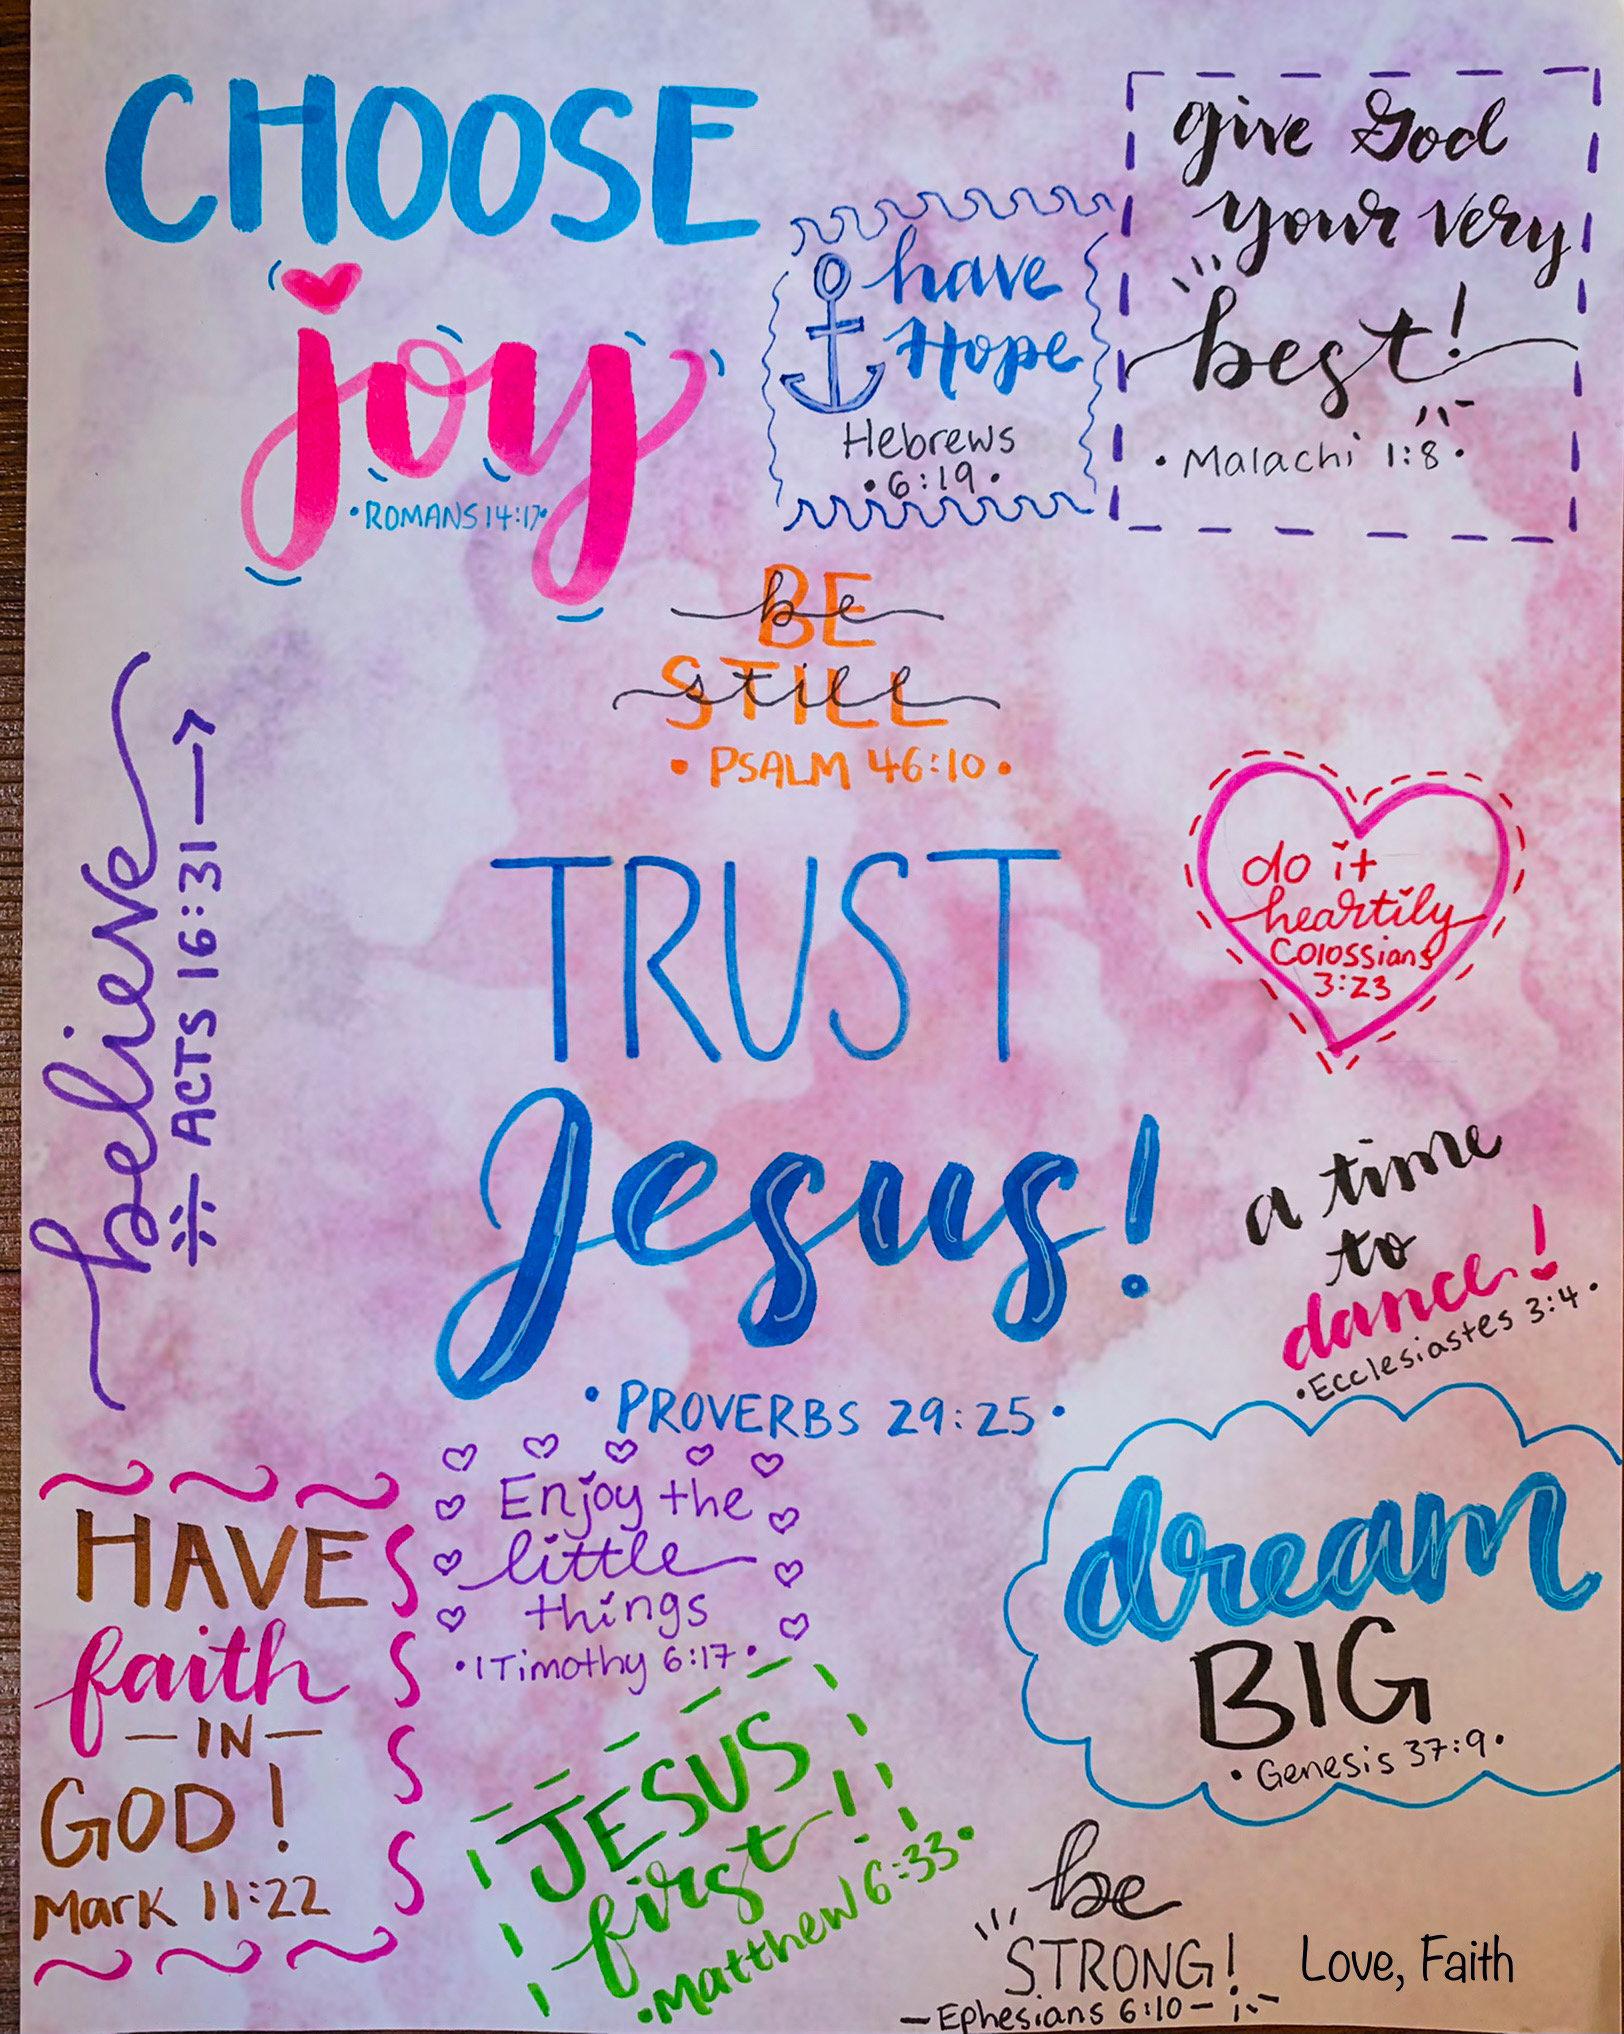 CHOOSE
joy
•ROMANS 14:17•
have
Hope
Hebrews
•6:19•
give God
your very
best!
•Malachi 1:8•
BE
be
STILL
still
•PSALM 46:10•
believe
ACTS 16:31
TRUST
Jesus!
•PROVERBS 29:25•
do it
heartily
Colossians
3:23
a time
to
dance!
•Ecclesiastes 3:4•
HAVE
faith
—IN—
GOD!
Mark 11:22
Enjoy the
little
things
•1 Timothy 6:17•
JESUS
first!
•Matthew 6:33•
dream
BIG
•Genesis 37:9•
be
STRONG!
—Ephesians 6:10—
Love, Faith